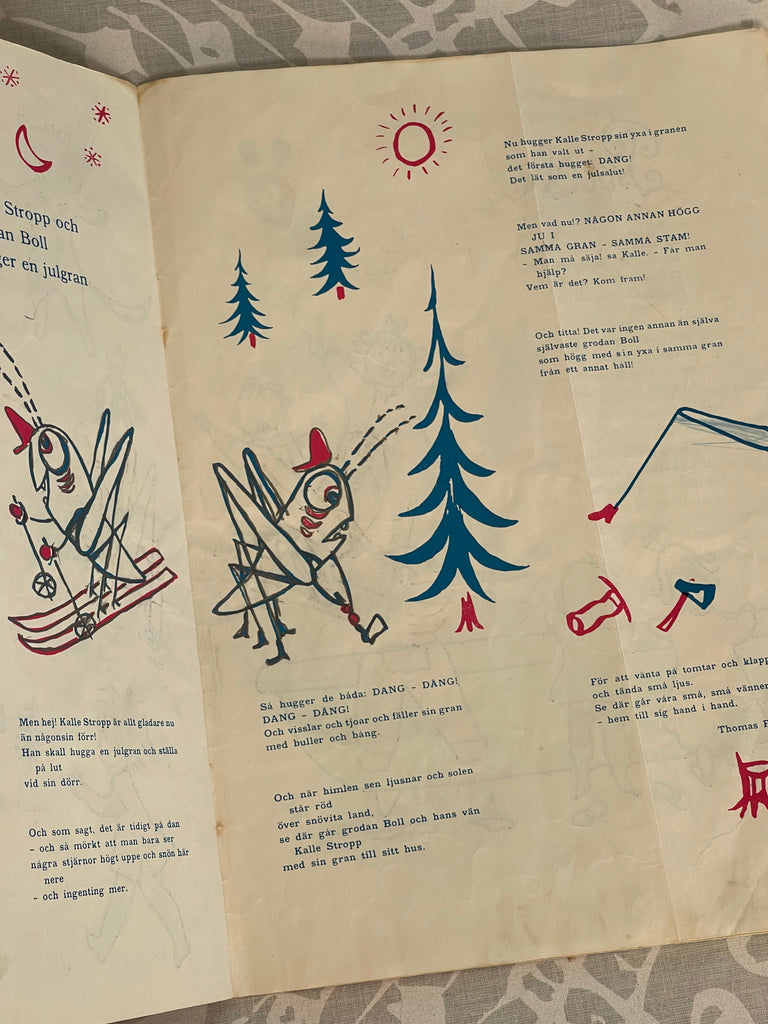 Stropp och
an Boll
ger en julgran
Men hej! Kalle Stropp är allt gladare nu
än någonsin förr!
Han skall hugga en julgran och ställa
på lut
vid sin dörr.
Och som sagt, det är tidigt på dan
– och så mörkt att man bara ser
några stjärnor högt uppe och snön här
nere
– och ingenting mer.
Så hugger de båda: DANG – DÅNG!
DANG – DÅNG!
Och visslar och tjoar och fäller sin gran
med buller och bång.
Och när himlen sen ljusnar och solen
står röd
över snövita land,
se där går grodan Boll och hans vän
Kalle Stropp
med sin gran till sitt hus.
Nu hugger Kalle Stropp sin yxa i granen
som han valt ut –
det första hugget: DANG!
Det lät som en julsalut!
Men vad nu!? NÅGON ANNAN HÖGG
JU I
SAMMA GRAN – SAMMA STAM!
– Man må säja! sa Kalle. – Får man
hjälp?
Vem är det? Kom fram!
Och titta! Det var ingen annan än själva
självaste grodan Boll
som högg med sin yxa i samma gran
från ett annat håll!
För att vänta på tomtar och klapp
och tända små ljus.
Se där går våra små, små vänner
– hem till sig hand i hand.
Thomas